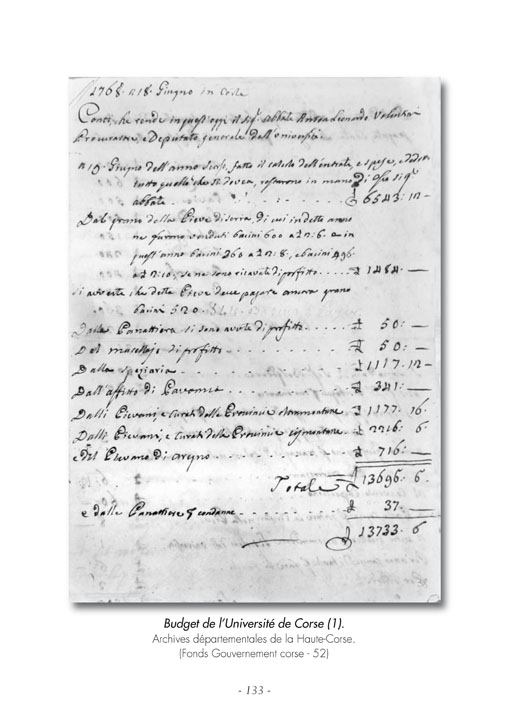 1768. a 18. Giugno in Corte
Conti, che rende in quest'oggi il Sig.r Abbate Leonardo
Procuratore, e Deputato generale dell'
a 10. Giugno dell'anno fatto il calcolo dell'entrate, e spese,
tutto quello che si doveva, restarono in mano di Sig.r
abbate . . . £ 6543: 12 -
Dal grano della Pieve di di cui in detto anno
ne furono venduti bacini 600 a £ 2: 6. e in
quest'anno bacini 260 a £ 2: 8, e bacini 496
a £ 2: 10, se ne sono ricavati di profitto . . . . £ 1484. —
si avverte, che detta Pieve deve pagare ancora grano
bacini 520
Dalla Panattiera si sono avute di profitto . . . . £ 50: —
Dal macellajo di profitto . . . . . . £ 50: —
Dalla speziaria . . . . . . . £ 1117. 12 -
Dall'affitto di . . . . . . £ 341: —
Dalli Pievani, e Curati delle Provincie £ 1177. 16.
Dalli Pievani, e Curati delle Provincie £ 2216. 6.
e dal Pievano di . . . . . . . £ 716: —
Totale £ 13696. 6.
e dalla Panattiera condanne . . . . . . £ 37. —
£ 13733. 6
Budget de l'Université de Corse (1).
Archives départementales de la Haute-Corse.
(Fonds Gouvernement corse - 52)
- 133 -